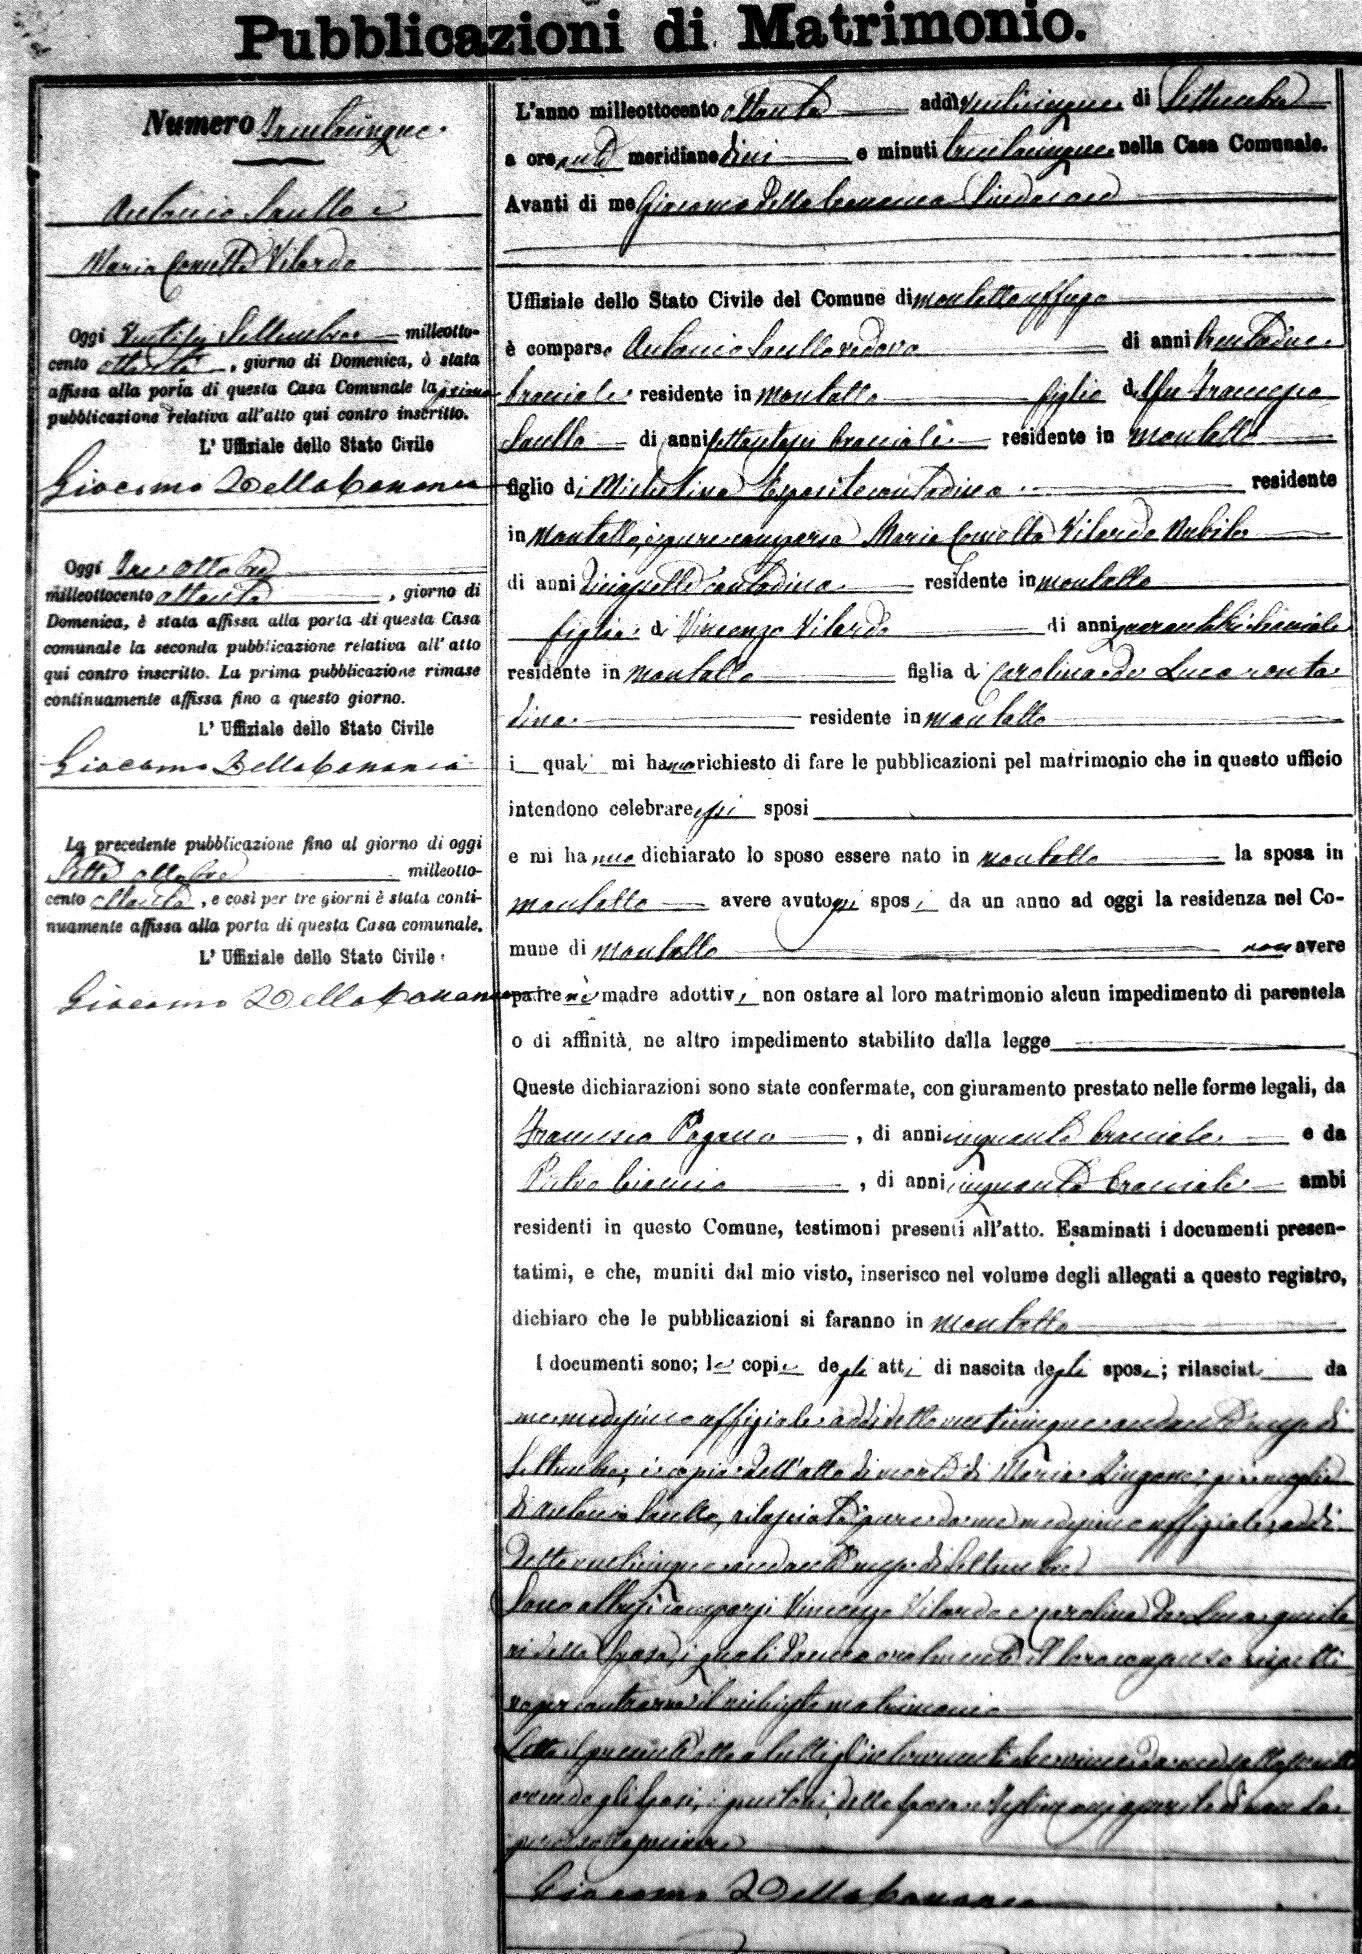 Pubblicazioni di Matrimonio.
Numero Trentacinque
Antonio Saullo e
Maria Concetta Vilardo
Oggi Ventisei Settembre milleotto-
cento ottanta, giorno di Domenica, è stata
affissa alla porta di questa Casa Comunale la prima
pubblicazione relativa all'atto qui contro inscritto.
L'Uffiziale dello Stato Civile
Giacomo Della Cananea
Oggi Tre Ottobre
milleottocento ottanta, giorno di
Domenica, è stata affissa alla porta di questa Casa
comunale la seconda pubblicazione relativa all'atto
qui contro inscritto. La prima pubblicazione rimase
continuamente affissa fino a questo giorno.
L'Uffiziale dello Stato Civile
Giacomo Della Cananea
La precedente pubblicazione fino al giorno di oggi
Sette Ottobre milleotto-
cento ottanta, e così per tre giorni è stata conti-
nuamente affissa alla porta di questa Casa comunale.
L'Uffiziale dello Stato Civile
Giacomo Della Cananea
L'anno milleottocento ottanta addì venticinque di Settembre
a ore anti meridiane dieci e minuti trentacinque nella Casa Comunale.
Avanti di me Giacomo Della Cananea Sindaco
Uffiziale dello Stato Civile del Comune di Montalto Uffugo
è comparso Antonio Saullo vedovo di anni trentadue
bracciale residente in Montalto figlio del fu Francesco
Saullo di anni settantasei bracciale residente in Montalto
figlio di Michelina Esposito contadina residente
in Montalto, è pure comparsa Maria Concetta Vilardo Nubile
di anni diciassette contadina residente in Montalto
figlia di Vincenzo Vilardo di anni quarantatrè bracciale
residente in Montalto figlia di Carolina de Luca conta
dina residente in Montalto
i quali mi hanno richiesto di fare le pubblicazioni pel matrimonio che in questo ufficio
intendono celebrare essi sposi
e mi hanno dichiarato lo sposo essere nato in Montalto la sposa in
Montalto avere avuto gli sposi da un anno ad oggi la residenza nel Co-
mune di Montalto non avere
padre nè madre adottivi non ostare al loro matrimonio alcun impedimento di parentela
o di affinità, ne altro impedimento stabilito dalla legge
Queste dichiarazioni sono state confermate, con giuramento prestato nelle forme legali, da
Francesco Pagano, di anni cinquanta bracciale e da
Pietro, di anni cinquanta bracciale ambi
residenti in questo Comune, testimoni presenti all'atto. Esaminati i documenti presen-
tatimi, e che, muniti dal mio visto, inserisco nel volume degli allegati a questo registro,
dichiaro che le pubblicazioni si faranno in Montalto
I documenti sono; le copie degli atti di nascita degli sposi; rilasciat da
me medesimo uffiziale addì detto venticinque andante mese di
Settembre; e copia dell'atto di morte di Maria già moglie
di Antonio Saullo, rilasciata pure da me medesimo uffiziale, addì
detto venticinque andante mese di Settembre
Sono altresì comparsi Vincenzo Vilardo e Carolina De Luca genito
ri della Sposa, i quali danno oralmente il loro consenso rispetti
vo per contrarre il richiesto matrimonio
Letto il presente atto a tutti gl'intervenuti che viene da me sottoscritto
avendo gli Sposi, i genitori della Sposa e Testimoni asserito di non sa
per sottoscrivere
Giacomo Della Cananea